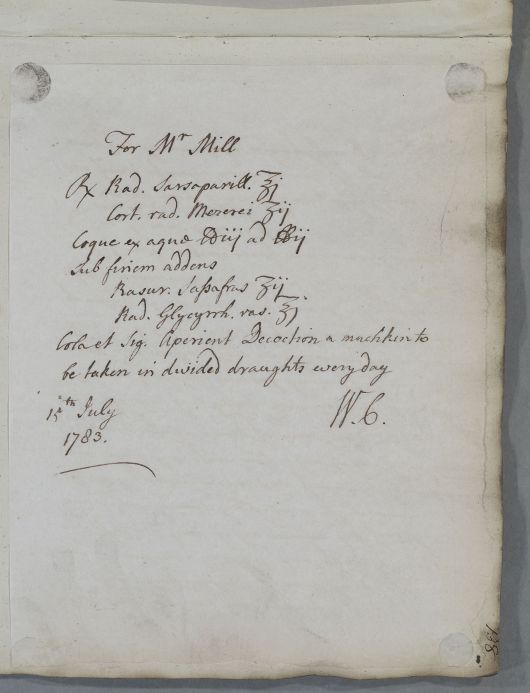 For Mr Mill
℞ Rad. Sarsaparill. ℥j
Cort. rad. Mezerei ʒij
Coque ex aquæ ℔iij ad ℔ij
Sub finem addens
Rasur. Sassafras ʒij
Rad. Glycyrrh. ras. ℥j.
Cola et Sig. Aperient Decoction a muchkin to
be taken in divided draughts every day
15th July W. C.
1783.